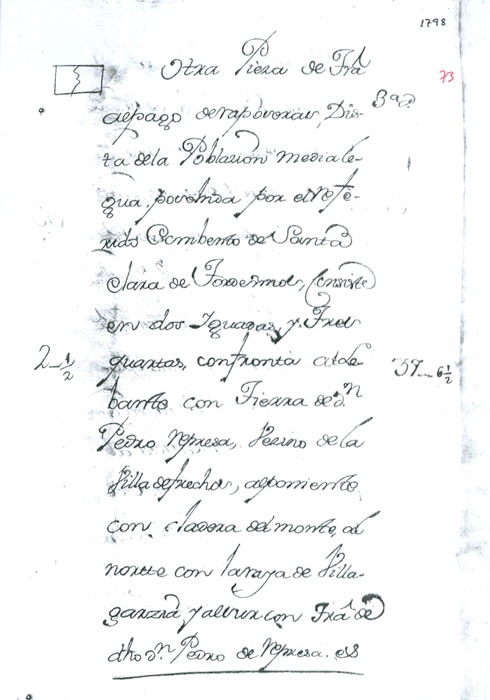 1798
73
Otra Pieza de Trâ
al pago de rapovoxas, Dis-
3ª qd
ta dela Poblazion media le-
gua, posehida por el refe-
rido Combento de Santa
Clara de Tordesillas, consiste
en dos Iguadas, y Tres
2 - 1/2
quartas, confronta al de
37 - 6 1/2
bante con Tierra de Dn
Pedro represa, Vezino de la
Villa de frechos, al poniente,
con cladera del monte, al
norte con la raya de Villa-
garzia y al sur con Trâ de
dho Dn Pedro de represa. es